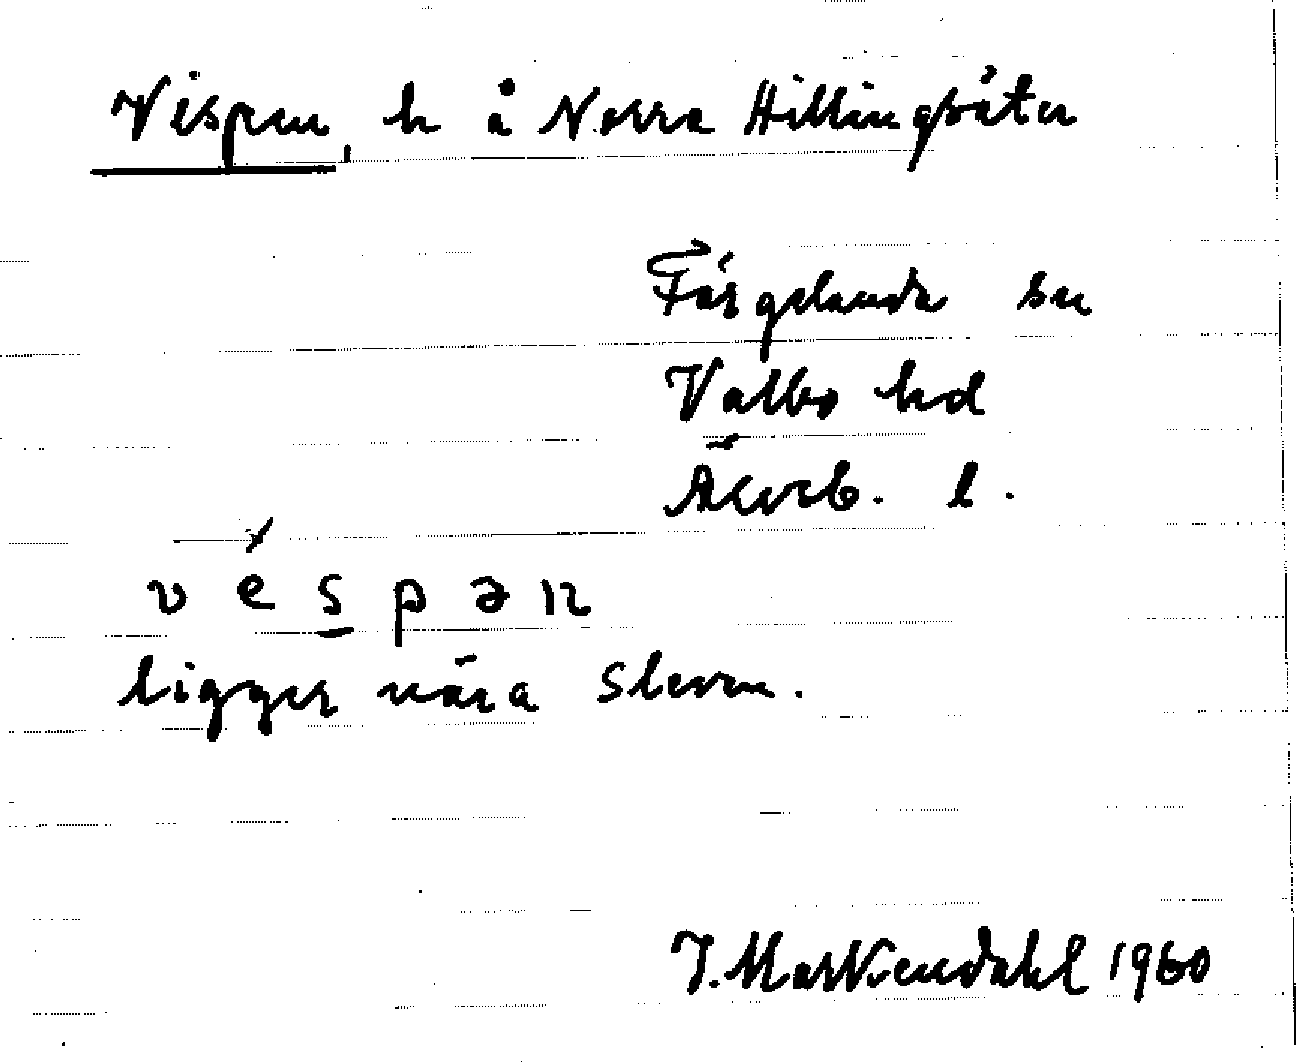 Vispen, h å Norra Hillingsäter
Färgelanda sn
Valbo hd
Älvsb. l.
v é s p ə n
ligger nära Sleven.
J. Markendahl 1960